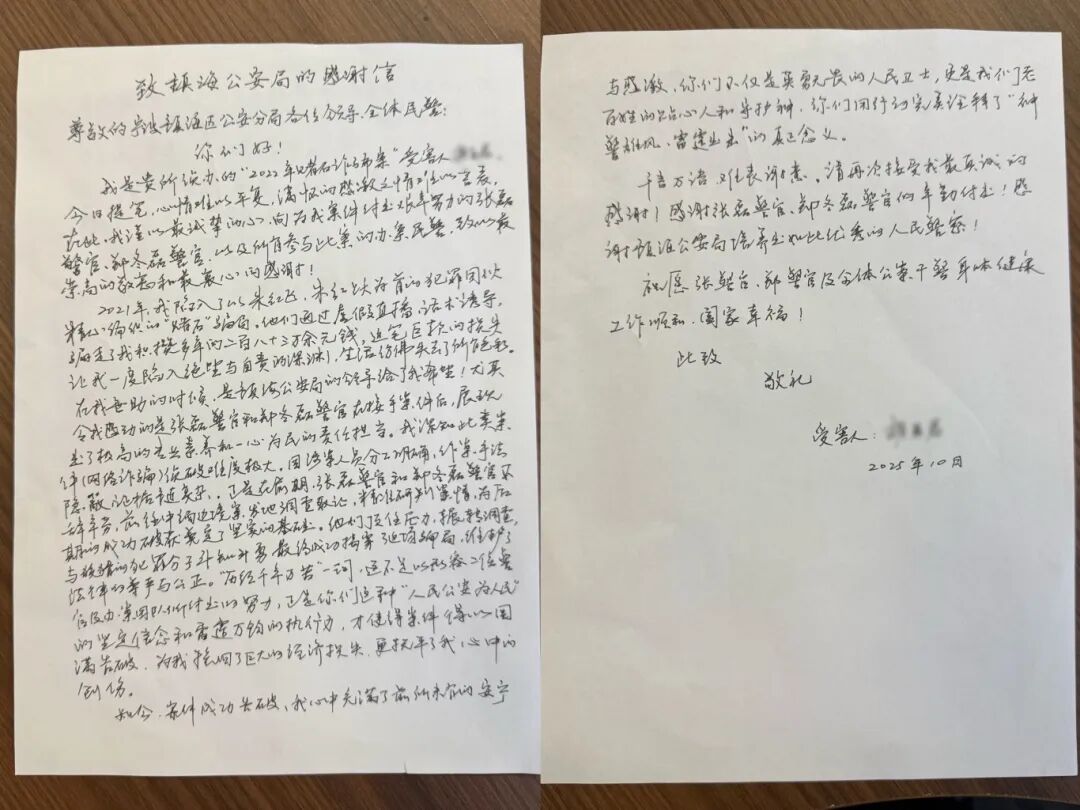 致镇海公安局的感谢信
尊敬的宁波镇海区公安分局各位领导、全体民警:
你们好!
我是贵所侦办的“2021年赌石诈骗案”受害人
今日提笔,心情难以平复,满怀的感激之情难以言表。
在此,我谨以最诚挚的心,向为我案件付出艰辛努力的张磊
警官、郑冬磊警官,以及所有参与此案的办案民警,致以最
崇高的敬意和最衷心的感谢!
2021年,我陷入了以朱红飞、朱红 为首的犯罪团伙
精心编织的“赌石”骗局。他们通过虚假直播、话术诱导,
骗走了我积攒多年的二百八十三万余元钱,这笔巨款的损失
让我一度陷入绝望与自责的深渊,生活仿佛失去了所有色彩。
在我无助的时候,是镇海公安局的领导给了我希望!尤其
令我感动的是张磊警官和郑冬磊警官在接手案件后,展现
出了极高的专业素养和一心为民的责任担当。我深知此类案
件(网络诈骗)侦破难度极大。因涉案人员分工明确,作案手法
隐蔽,证据链复杂。正是在前期,张磊警官和郑冬磊警官不
辞辛劳,前往中缅边境案发地调查取证,精准研判案情,为后
期的成功破获奠定了坚实的基础。他们顶住压力,辗转调查,
与狡猾的犯罪分子斗智斗勇,最终成功揭穿了这场骗局,维护了
法律的尊严与公正。“历经千辛万苦”一词,远不足以形容二位警
官及办案团队所付出的努力,正是你们这种“人民公安为人民”
的坚定信念和雷霆万钧的执行力,才使得案件得以圆
满告破,为我挽回了巨大的经济损失,更抚平了我心中的
创伤。
如今,案件成功告破,我心中充满了前所未有的安宁
与感激,你们不仅是英勇无畏的人民卫士,更是我们老
百姓的贴心人和守护神,你们用行动完美诠释了“神
警雄风、雷霆出击”的真正含义。
千言万语,难表谢意。请再次接受我最真诚的
感谢!感谢张磊警官、郑冬磊警官的辛勤付出!感
谢镇海公安局培养出如此优秀的人民警察!
祝愿张警官、郑警官及全体公安干警身体健康
工作顺利、阖家幸福!
此致
敬礼
受害人:
2025年10月